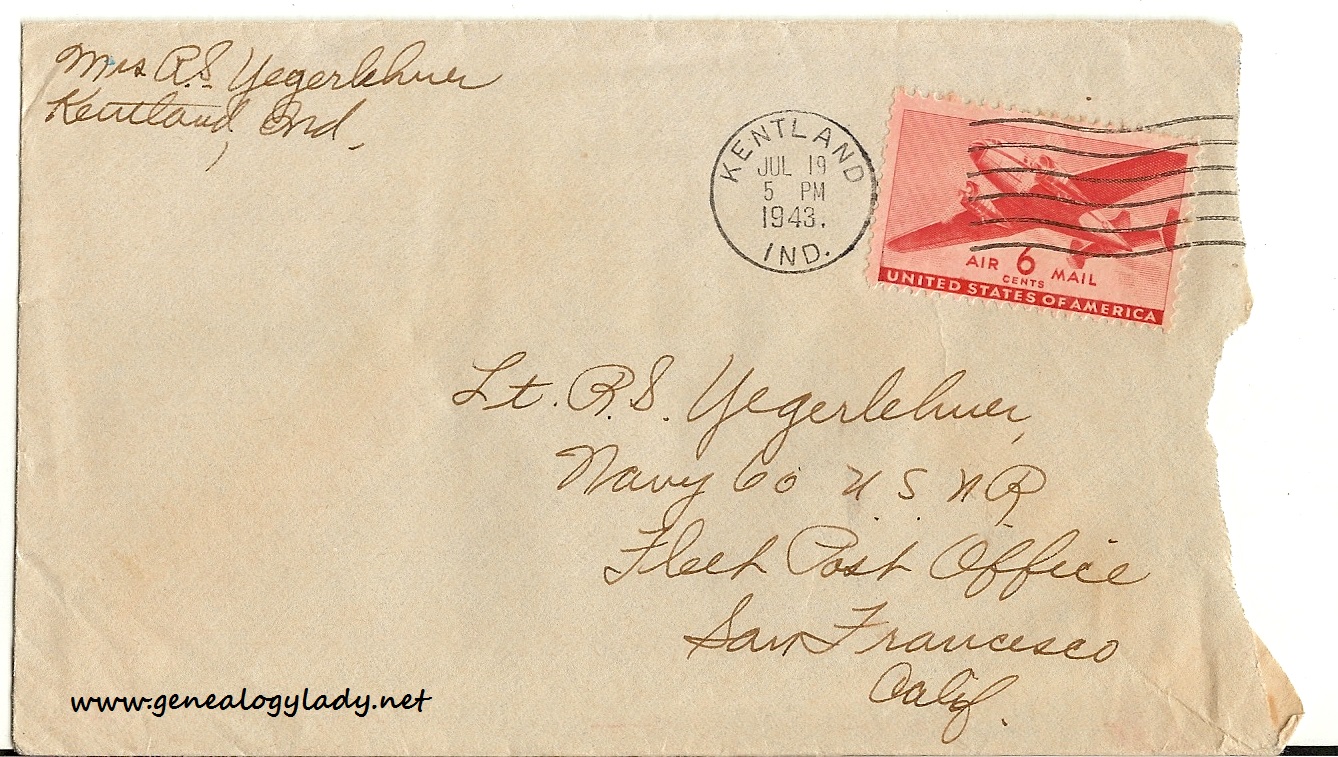 Mrs R.S. Yegerlehner
Kentland, Ind.
KENTLAND
JUL 19
5 PM
1943.
IND.
AIR 6 MAIL
CENTS
UNITED STATES OF AMERICA
Lt. R.S. Yegerlehner,
Navy 60 U.S.N.R.
Fleet Post Office
San Francisco
Calif.
www.genealogylady.net